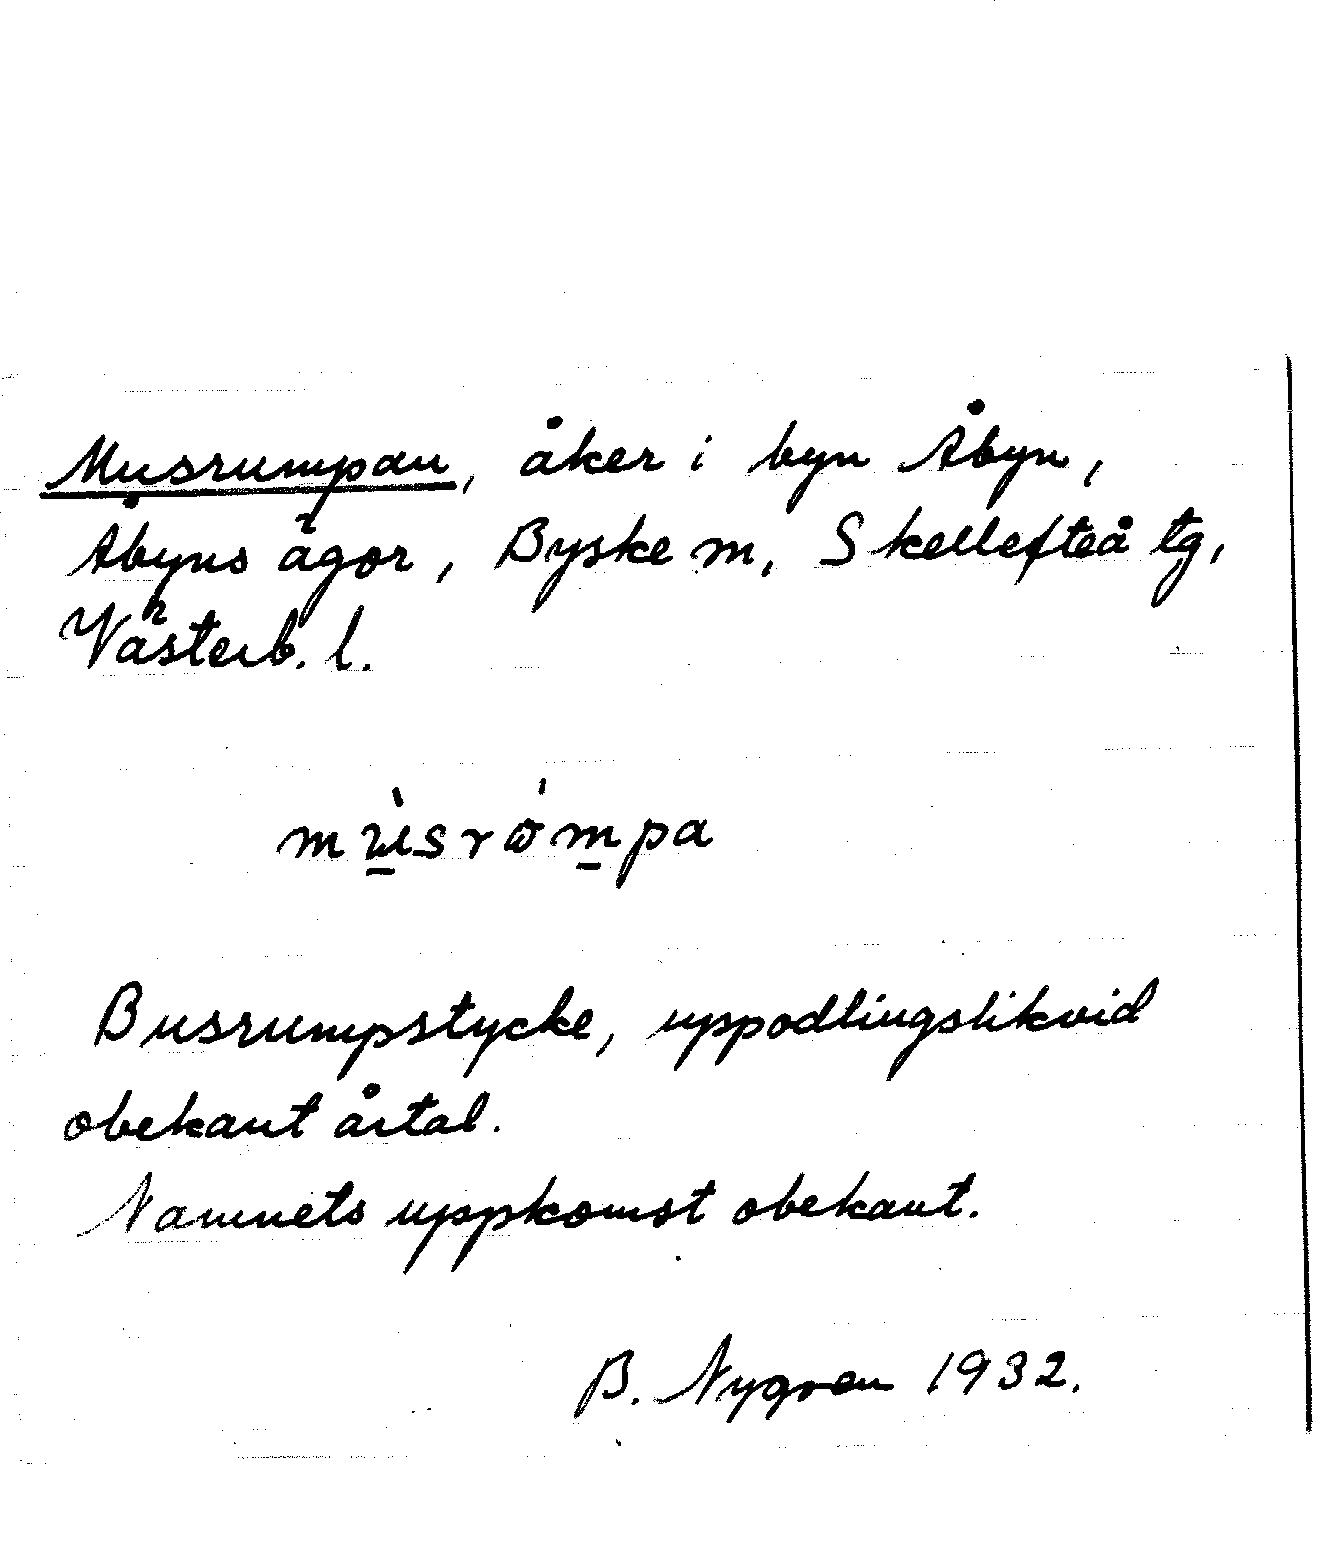 Musrumpan, åker i byn Åbyn,
Åbyns ägor, Byske sn, Skellefteå tg,
Västerb. l.
Busrumpstycke, uppodlingslikvid
obekant årtal.
Namnets uppkomst obekant.
B. Nygren 1932.